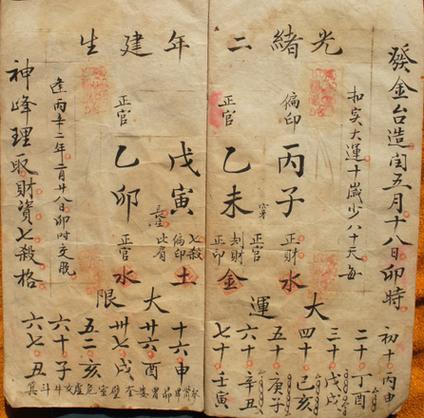 光緒二年建生
發金台造閏五月十八日卯時
扣实大運十歲少八十天每
偏印
丙子
正財
水
正官
乙未
正官
刦財
正印
金
戊寅
七殺
偏印
此有
土
正官
乙卯
正官
水
逢丙辛二年二月廿八日卯时交脫
神峰理取財資七殺格
大運
初十丙申
二十丁酉
三十戊戌
四十己亥
五十庚子
六十辛丑
七十壬寅
大限
十六申
廿六酉
卅七戌
五二亥
六十子
六七丑